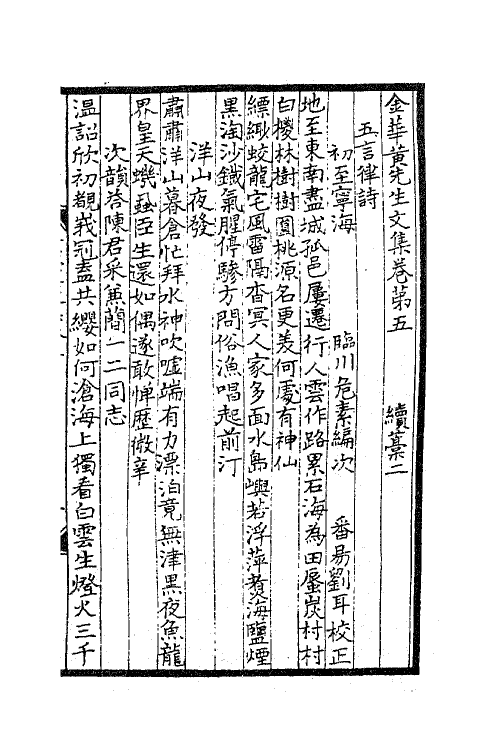 金華黃先生文集卷第五　續藁二
五言律詩　臨川危素編次　番昜劉耳校正
初至寧海
地至東南盡城孤邑屢遷行人雲作路累石海為田蜃炭村村
白櫻林樹樹圓桃源名更羙何處有神仙
縹緲蛟龍宅風雷隔杳冥人家多面水島嶼若浮萍煑海鹽煙
黑淘沙鐵氣腥停驂方問俗漁唱起前汀
洋山夜發
肅肅洋山暮倉忙拜水神吹噓端有力漂泊竟無津黑夜魚龍
界皇天蟣蝨臣生還如偶遂敢憚歷微辛
次韻答陳君采兼簡一二同志
温詔欣初覩峩冠盍共纓如何滄海上獨看白雲生燈火三千